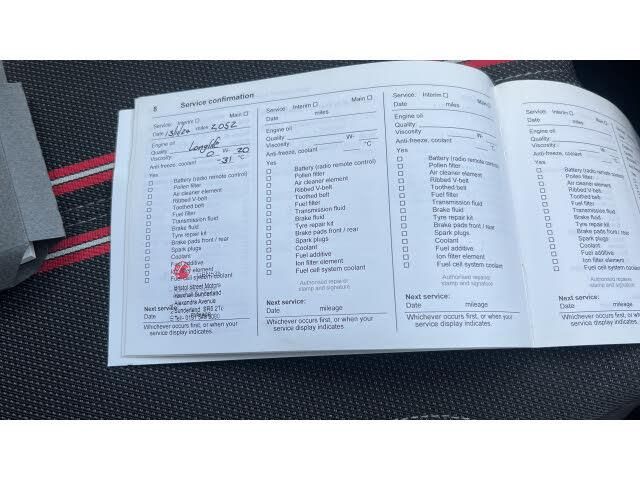 8 Service confirmation
Service: Interim ☐ Main ☐
Date 13/1/24 miles 2,052
Engine oil
Quality Longlife
Viscosity: 0 W- 20
Anti-freeze, coolant -31 °C
Yes
☐ Battery (radio remote control)
☐ Pollen filter
☐ Air cleaner element
☐ Ribbed V-belt
☐ Toothed belt
☐ Fuel filter
☐ Transmission fluid
☐ Brake fluid
☐ Tyre repair kit
☐ Brake pads front / rear
☐ Spark plugs
☐ Coolant
☐ Fuel additive
☐ element
☐ system coolant
Bristol Street Motors
Vauxhall Sunderland
Alexandra Avenue
Sunderland
Next service:
Date
Whichever occurs first, or when your
service display indicates.
Service: Interim ☐ Main ☐
Date miles
Engine oil
Quality
Viscosity: W-
Anti-freeze, coolant °C
Yes
☐ Battery (radio remote control)
☐ Pollen filter
☐ Air cleaner element
☐ Ribbed V-belt
☐ Toothed belt
☐ Fuel filter
☐ Transmission fluid
☐ Brake fluid
☐ Tyre repair kit
☐ Brake pads front / rear
☐ Spark plugs
☐ Coolant
☐ Fuel additive
☐ Ion filter element
☐ Fuel cell system coolant
Authorised repairer
stamp and signature
Next service:
Date mileage
Whichever occurs first, or when your
service display indicates.
Service: Interim ☐ Main ☐
Date miles
Engine oil
Quality
Viscosity: W-
Anti-freeze, coolant °C
Yes
☐ Battery (radio remote control)
☐ Pollen filter
☐ Air cleaner element
☐ Ribbed V-belt
☐ Toothed belt
☐ Fuel filter
☐ Transmission fluid
☐ Brake fluid
☐ Tyre repair kit
☐ Brake pads front / rear
☐ Spark plugs
☐ Coolant
☐ Fuel additive
☐ Ion filter element
☐ Fuel cell system coolant
Authorised repairer
stamp and signature
Next service:
Date mileage
Whichever occurs first, or when your
service display indicates.
Service: Interim ☐
Date miles
Engine oil
Quality
Viscosity:
Anti-freeze, coolant
Yes
☐ Battery (radio remote
☐ Pollen filter
☐ Air cleaner element
☐ Ribbed V-belt
☐ Toothed belt
☐ Fuel filter
☐ Transmission fluid
☐ Brake fluid
☐ Tyre repair kit
☐ Brake pads front / rear
☐ Spark plugs
☐ Coolant
☐ Fuel additive
☐ Ion filter element
☐ Fuel cell system coolant
Authorised repairer
stamp and signature
Next service:
Date mileage
Whichever occurs first, or
service display indicates.